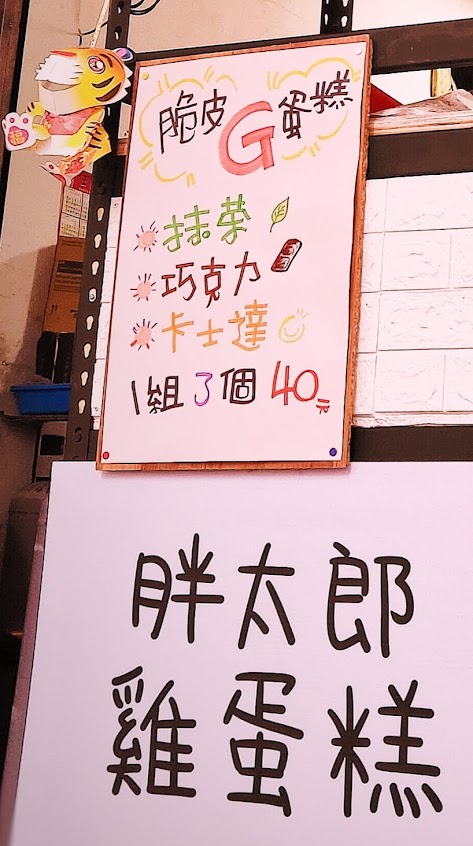 脆皮G蛋糕
抹茶
巧克力
卡士達
1組3個40元
胖太郎
雞蛋糕